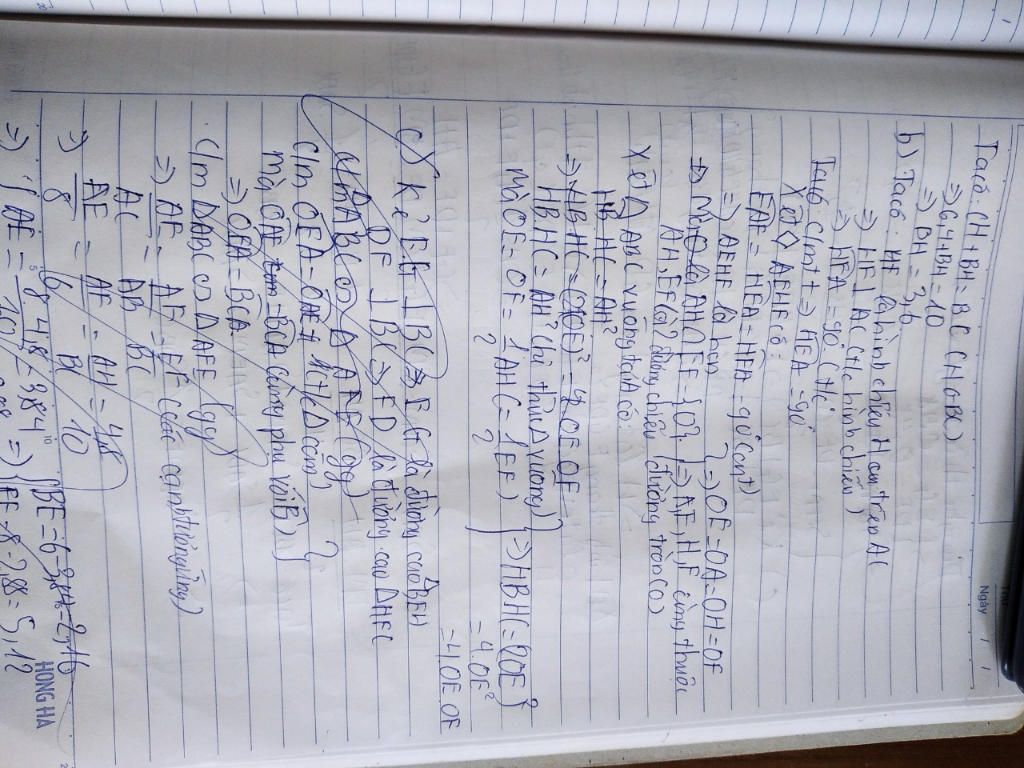 Ngày / /
Ta có: CH + BH = BC (H ∈ BC)
=> 6,4 + BH = 10
=> BH = 3,6
b) Ta có: HF là hình chiếu H trên AC
=> HF ⊥ AC (T/c hình chiếu)
=> HFA = 90° (T/c
Ta có: C/m t² => HEA = 90°
Xét ◇ AEHF có:
EAF = HEA = HFA = 90° (cmt)
=> AEHF là hcn
Mà AH ∩ EF = {O} } => OE = OA = OH = OF
AH, EF là đường chiếu => A, E, H, F cùng thuộc (đường tròn (O)
Xét Δ ABC vuông tại A có:
HB HC = AH²
=> HB HC = (2OE)² = 4 OE OF
HB HC = AH² (hệ thức Δ vuông)
Mà OE = OF = 1/2 AH (= 1/2 EF) } => HB HC = (2OE)²
= 4.OE²
= 4.OE.OF
c) Kẻ EG ⊥ BC => EG là đường cao ΔBEH
DF ⊥ BC => FD là đường cao ΔHFC
c/m ΔABC ∽ Δ AFE (gg)
C/m OEA = OAE
mà OAE = BCA (cùng phụ với B)
=> OEA = BCA
C/m ΔABC ∽ ΔAFE (gg)
=> AE/AC = AF/AB = EF/BC (các cạnh tương ứng)
=> AE/8 = AF/6 = AH/BC = 4,8/10
=> { AE = 8.4,8/10 = 3,84 => { BE = 6 - 3,84 = 2,16
8 - 2,88 = 5,12
HONG HA